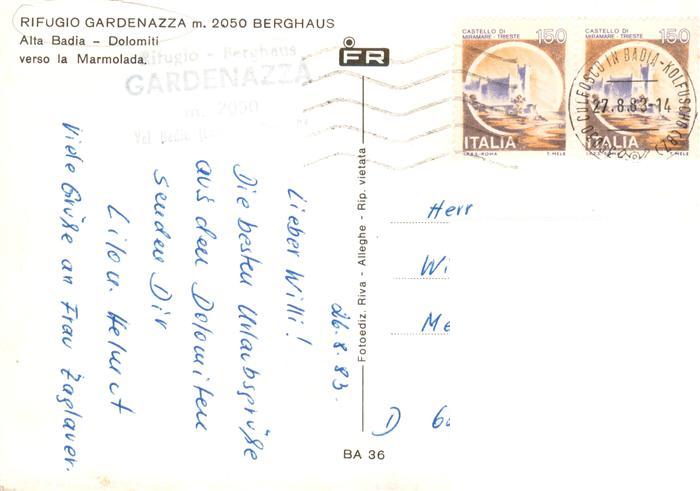 RIFUGIO GARDENAZZA m. 2050 BERGHAUS
Alta Badia - Dolomiti
verso la Marmolada.
Rifugio - Berghaus
GARDENAZZA
m. 2050
Val Badia
FR
CASTELLO DI
MIRAMARE - TRIESTE
150
ITALIA
I.P.Z.S. ROMA
T. MELE
CASTELLO DI
MIRAMARE - TRIESTE
150
ITALIA
I.P.Z.S. ROMA
T. MELE
COLFOSCO IN BADIA - KOLFUSCHG
27.8.83-14
26.8.83.
Lieber Willi!
Die besten Urlaubsgrüße
aus den Dolomiten
senden Dir
Lilo u. Helmut
Viele Grüße an Frau Zaglauer.
Fotoediz. Riva - Alleghe - Rip. vietata
Herr
Wi
Me
D 6
BA 36